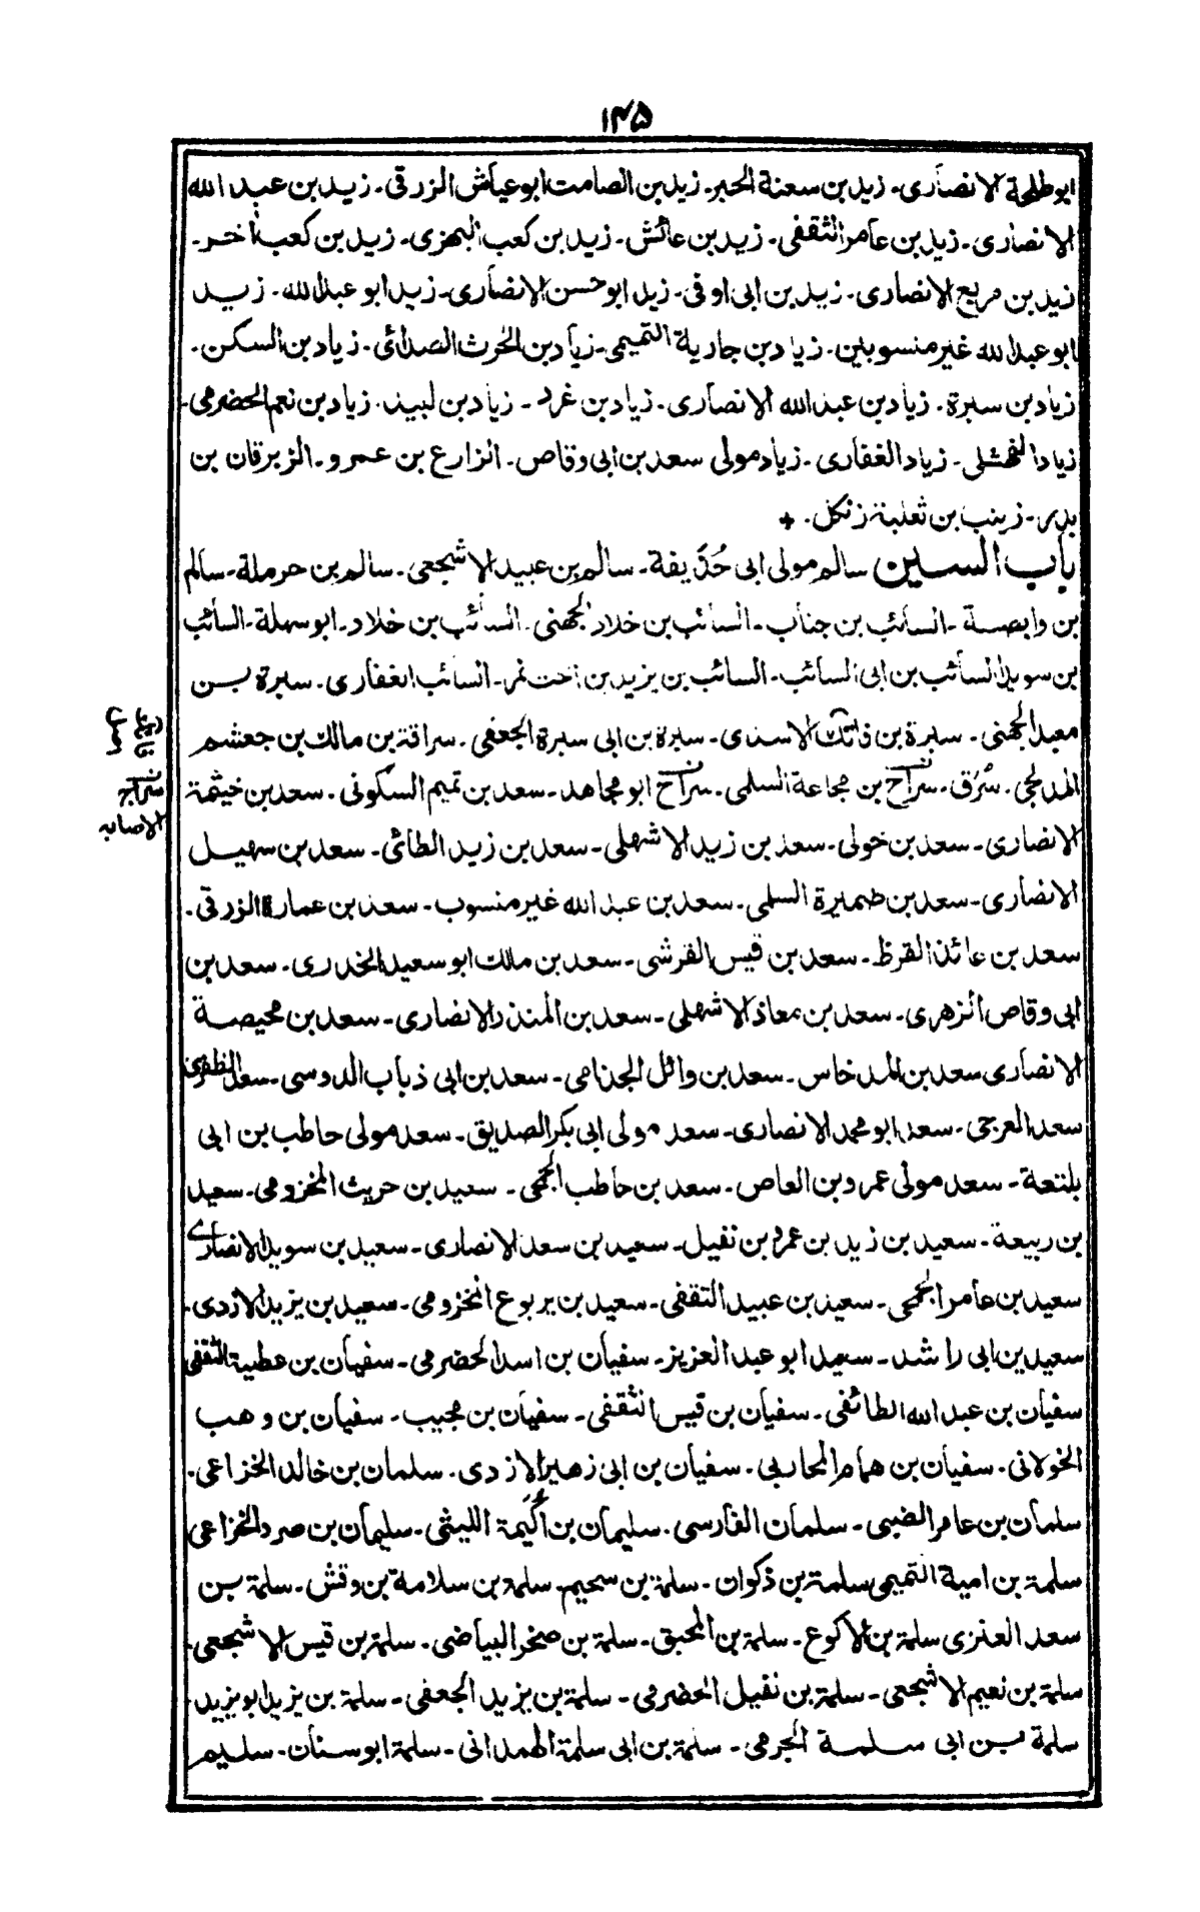 ۱۴۵
ابو طلحة الانصاری۔ زید بن سعنة الحبر۔ زید بن الصامت ابو عیاش الزرقی۔ زید بن عبد الله
الانصاری۔ زید بن عامر الثقفی۔ زید بن عائش۔ زید بن کعب البهزی۔ زید بن کعب اٰخر۔
زید بن مربع الانصاری۔ زید بن ابی اوفی۔ زید ابو حسن الانصاری۔ زید ابو عبد الله۔ زید
ابو عبد الله غیر منسوبین۔ زیاد بن جاریة التمیمی۔ زیاد بن الحٰرث الصدائی۔ زیاد بن السکن۔
زیاد بن سبرة۔ زیاد بن عبد الله الانصاری۔ زیاد بن غرد۔ زیاد بن لبید۔ زیاد بن نعم الحضرمی۔
زیاد النهشلی۔ زیاد الغفاری۔ زیاد مولی سعد بن ابی وقاص۔ الزارع بن عمرو۔ الزبرقان بن
بدر۔ زینب بن ثعلبة زنکل۔
باب السین سالم مولی ابی حُذَیفة۔ سالم بن عبید الاشجعی۔ سالم بن حرملة۔ سالم
بن وابصة۔ السائب بن جناب۔ السائب بن خلاد الجهنی۔ السائب بن خلاد۔ ابو سهلة۔ السائب
بن سوید السائب بن ابی السائب۔ السائب بن یزید بن اخت نمر۔ السائب الغفاری۔ سبرة بن
معبد الجهنی۔ سبرة بن فاتک الاسدی۔ سبرة بن ابی سبرة الجعفی۔ سراقة بن مالک بن جعشم
المدلجی۔ سُرَق۔ سراج بن مجاعة السلمی۔ سراج ابو مجاهد۔ سعد بن تمیم السکونی۔ سعد بن خیثمة
سراج
الاصابه
الانصاری۔ سعد بن خولی۔ سعد بن زید الاشهلی۔ سعد بن زید الطائی۔ سعد بن سهیل
الانصاری۔ سعد بن ضمیرة السلمی۔ سعد بن عبد الله غیر منسوب۔ سعد بن عمارة الزرقی۔
سعد بن عائذ القرظ۔ سعد بن قیس القرشی۔ سعد بن مالک ابو سعید الخدری۔ سعد بن
ابی وقاص الزهری۔ سعد بن معاذ الاشهلی۔ سعد بن المنذر الانصاری۔ سعد بن محیصة
الانصاری سعد بن المدخاس۔ سعد بن وائل الجذامی۔ سعد بن ابی ذباب الدوسی۔ سعد الظفری
سعد العرجی۔ سعد ابو محمد الانصاری۔ سعد مولی ابی بکر الصدیق۔ سعد مولی حاطب بن ابی
بلتعة۔ سعد مولی عمرو بن العاص۔ سعد بن حاطب الجمحی۔ سعید بن حریث المخزومی۔ سعید
بن ربیعة۔ سعید بن زید بن عمرو بن نفیل۔ سعید بن سعد الانصاری۔ سعید بن سوید الانصاری
سعید بن عامر الجمحی۔ سعید بن عبید الثقفی۔ سعید بن یربوع المخزومی۔ سعید بن یزید الازدی۔
سعید بن ابی راشد۔ سعید ابو عبد العزیز۔ سفیان بن اسد الحضرمی۔ سفیان بن عطیة الثقفی
سفیان بن عبد الله الطائفی۔ سفیان بن قیس الثقفی۔ سفیان بن مجیب۔ سفیان بن وهب
الخولانی۔ سفیان بن همام المحاربی۔ سفیان بن ابی زهیر الازدی۔ سلمان بن خالد الخزاعی۔
سلمان بن عامر الضبی۔ سلمان الفارسی۔ سلیمان بن اُکَیمة اللیثی۔ سلیمان بن صرد الخزاعی
سلمة بن امیة التمیمی سلمة بن ذکوان۔ سلمة بن سحیم۔ سلمة بن سلامة بن وقش۔ سلمة بن
سعد العنزی سلمة بن الاکوع۔ سلمة بن المحبق۔ سلمة بن صخر البیاضی۔ سلمة بن قیس الاشجعی۔
سلمة بن نعیم الاشجعی۔ سلمة بن نفیل الحضرمی۔ سلمة بن یزید الجعفی۔ سلمة بن یزید ابو یزید
سلمة بن ابی سلمة الجرمی۔ سلمة بن ابی سلمة الهمدانی۔ سلمة ابو سنان۔ سلیم